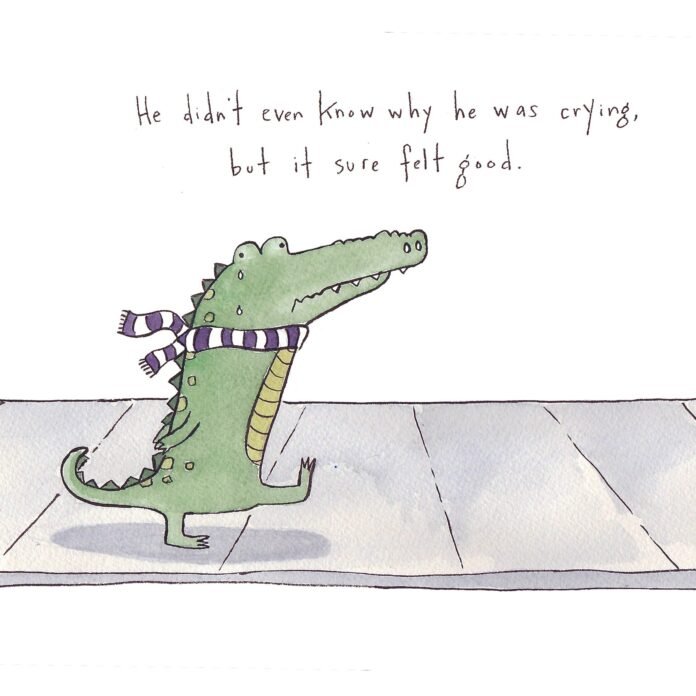 He didn't even know why he was crying,
but it sure felt good.